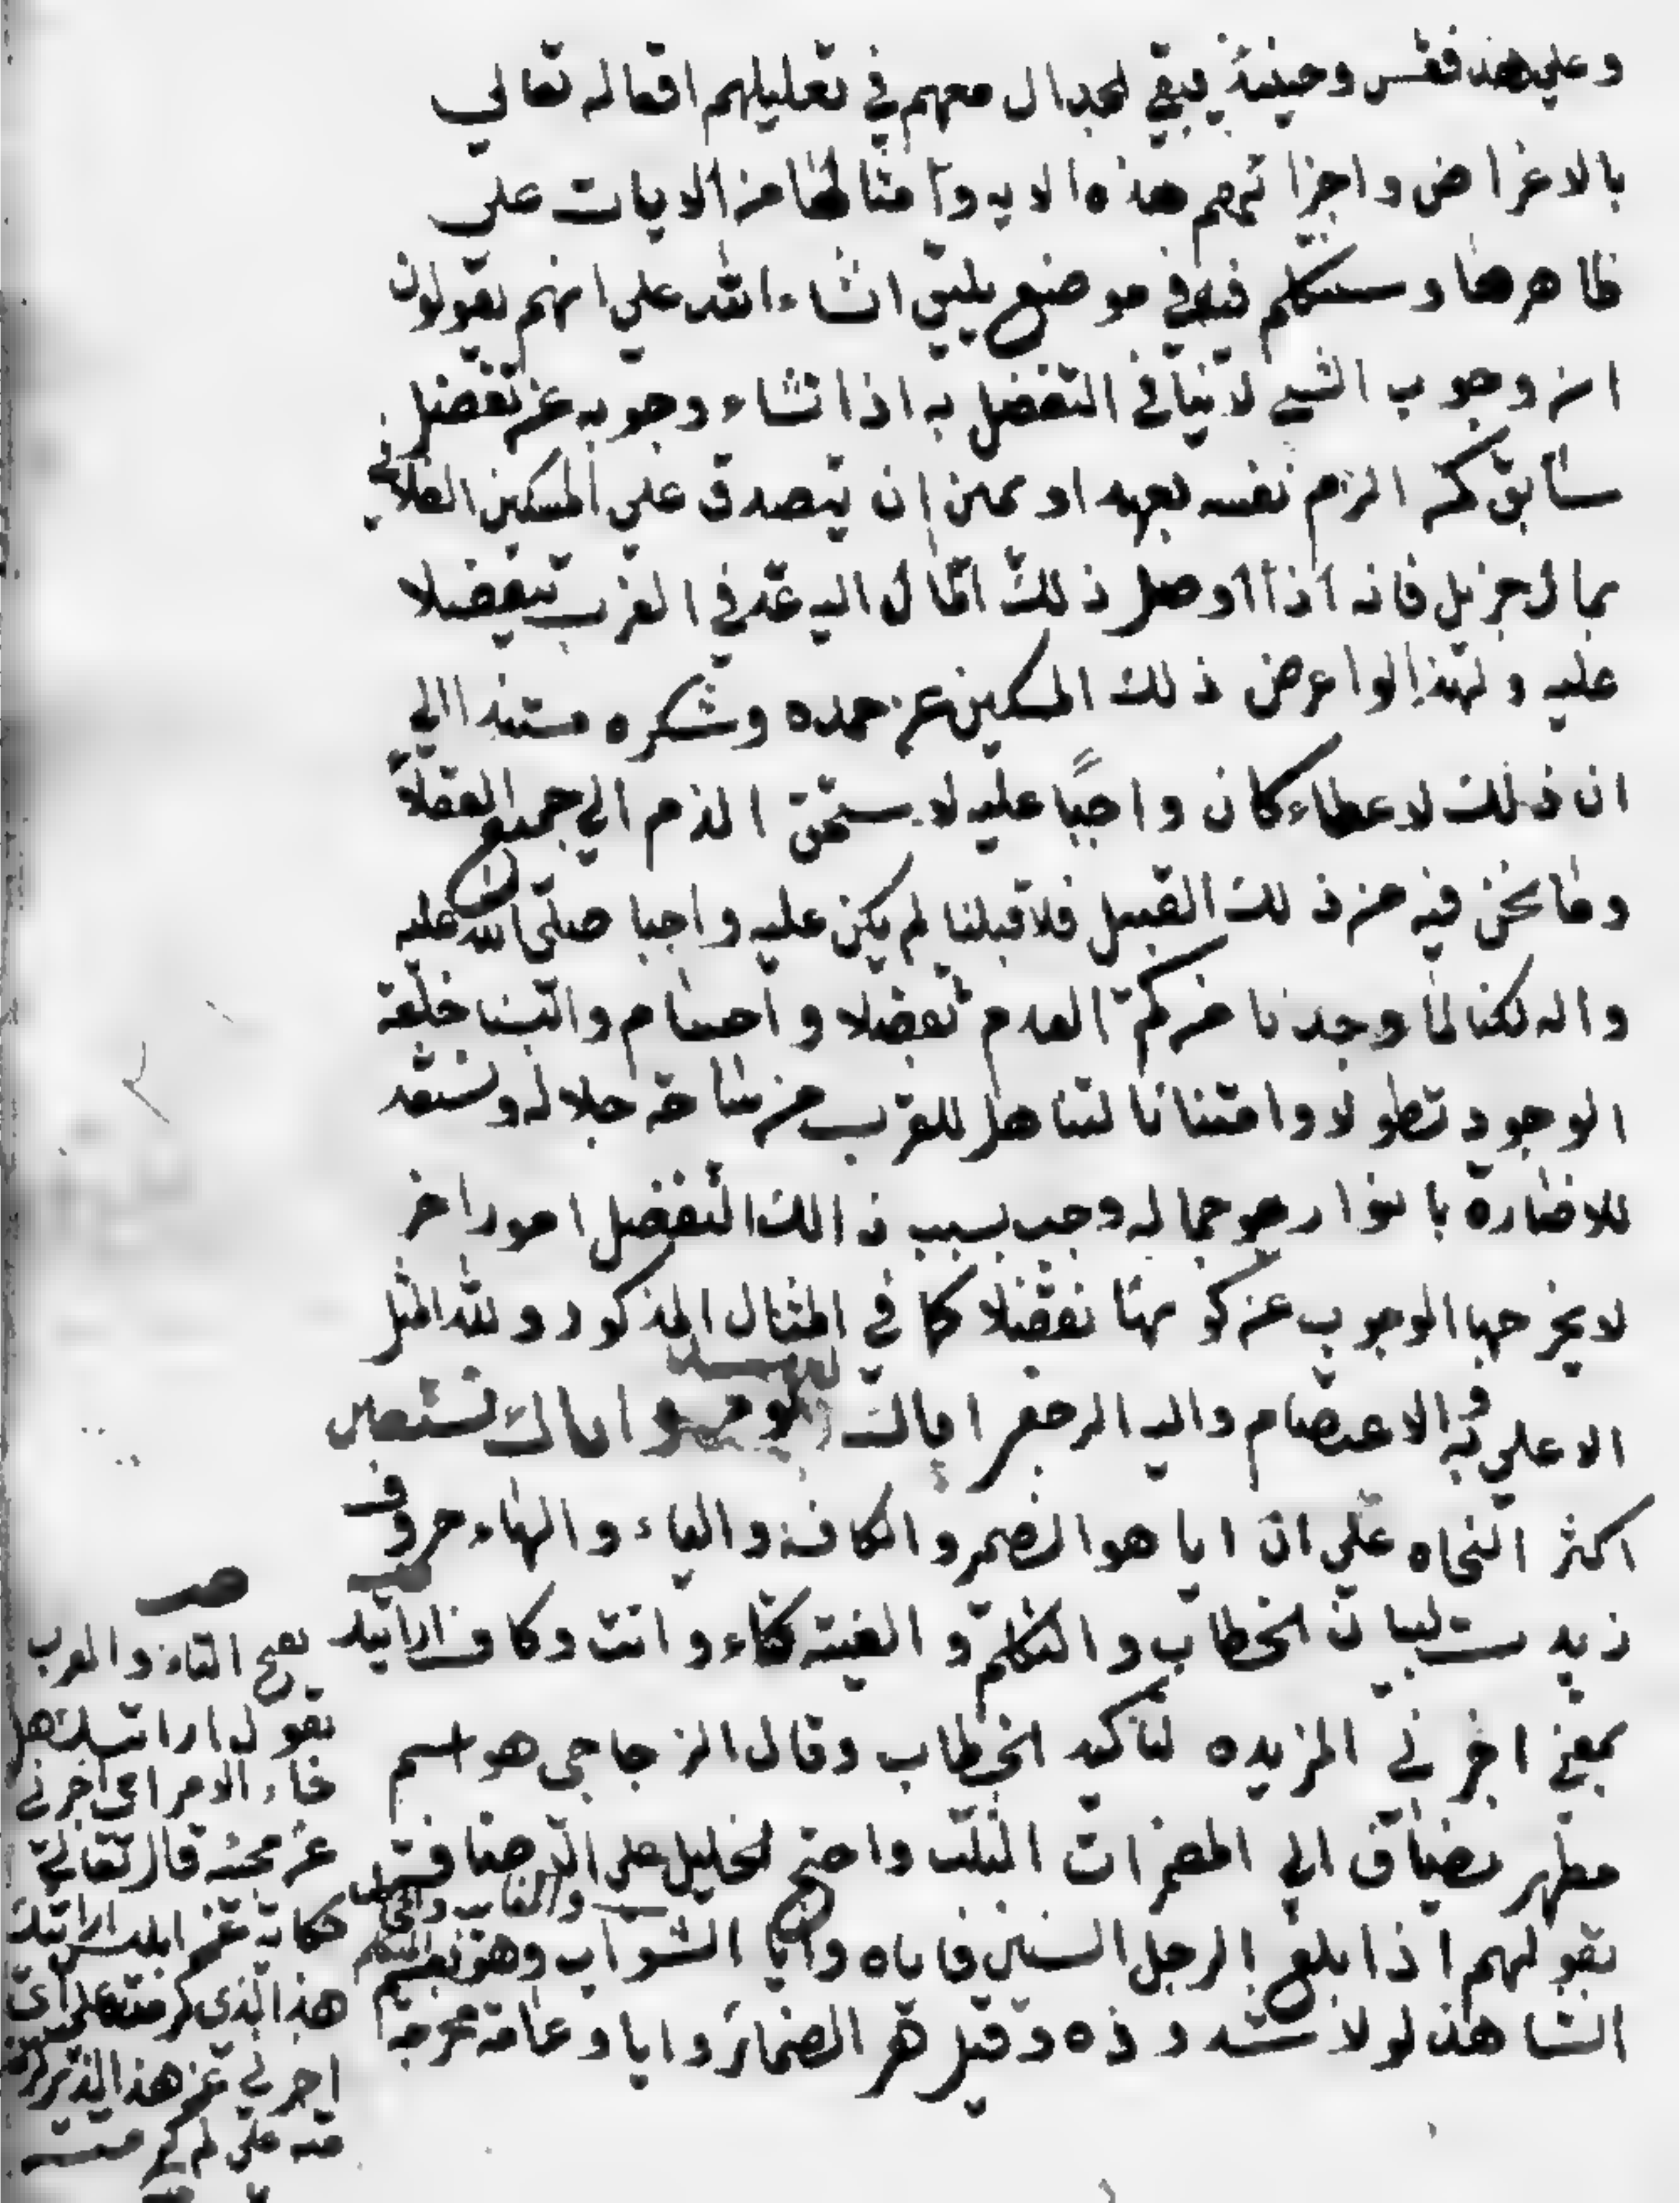 وعلي هذ فقس وحينئذ يبقي لجدال معهم في تعليلهم افعاله تعالي
بالاغراض واجزائهم هذه الايه وامثالها من الايات علي
ظاهرها وسنتكلم فيه في موضع يليق انشاءالله علي انهم يقولون
ان وجوب الشيي لاينافي التفضل به اذا نشاء وجوبه عن تفضل
سابق كمن الزم نفسه بعهد او يمين ان يتصدق علي المسكين الفلاني
بمال جزيل فانه اذا اوصل ذلك المال اليه عد في العرف تفضلا
عليه ولهذا لو اعرض ذلك المسكين عن حمده وشكره مستندا الي
ان ذلك لاعطاء كان واجبًا عليه لاستحق الذم الي جميع العقلاء
وما نحن فيه من ذلك القبيل فلا قبلنا لم يكن عليه واجبا صلي الله عليه
واله لكنا لما وجدنا من كتم العدم تفضلا و والبسنا خلعة
الوجود تطولا وامتنانا لنتاهل للقرب من ساحة جلاله ونستعد
للاضارة بانوار جماله وجب بسبب ذالك التفضل امور اخر
لايخرجها الوجوب عن كونها تفضلا كما في المثال المذكور ولله المثل
الاعلي وبه الاعتصام واليه الرجعي اياك واياك نستعين
اكثر النحاه علي ان ايا هو الضمير والكاف والياء والهاء حروف
زيدت لبيان الخطاب والتكلم والغيبة كتاء وانت وكاف ارايتك
بمعني اخرني المزيده لتاكيد الخطاب وقال الزجاجي هو اسم
مظهر مضاف الي المضمرات الثلث واحتج لخليل علي الاضافة
بقولهم اذا بلغ الرجل الستين فاياه وايا الشواب
الشاهد لولا شدوذه وقيل هي الضمائر وايا دعامة مخرجة
صر
بفتح التاء والعرب
تقول ارايتك هل
جاء الامر اي اخرني
عن محبته قال تعالي
حكاية عن ابليس ارايتك
هذا الذي كرمته علي اي
اخرني عن هذا الذي كرمته
علي لم كرمته